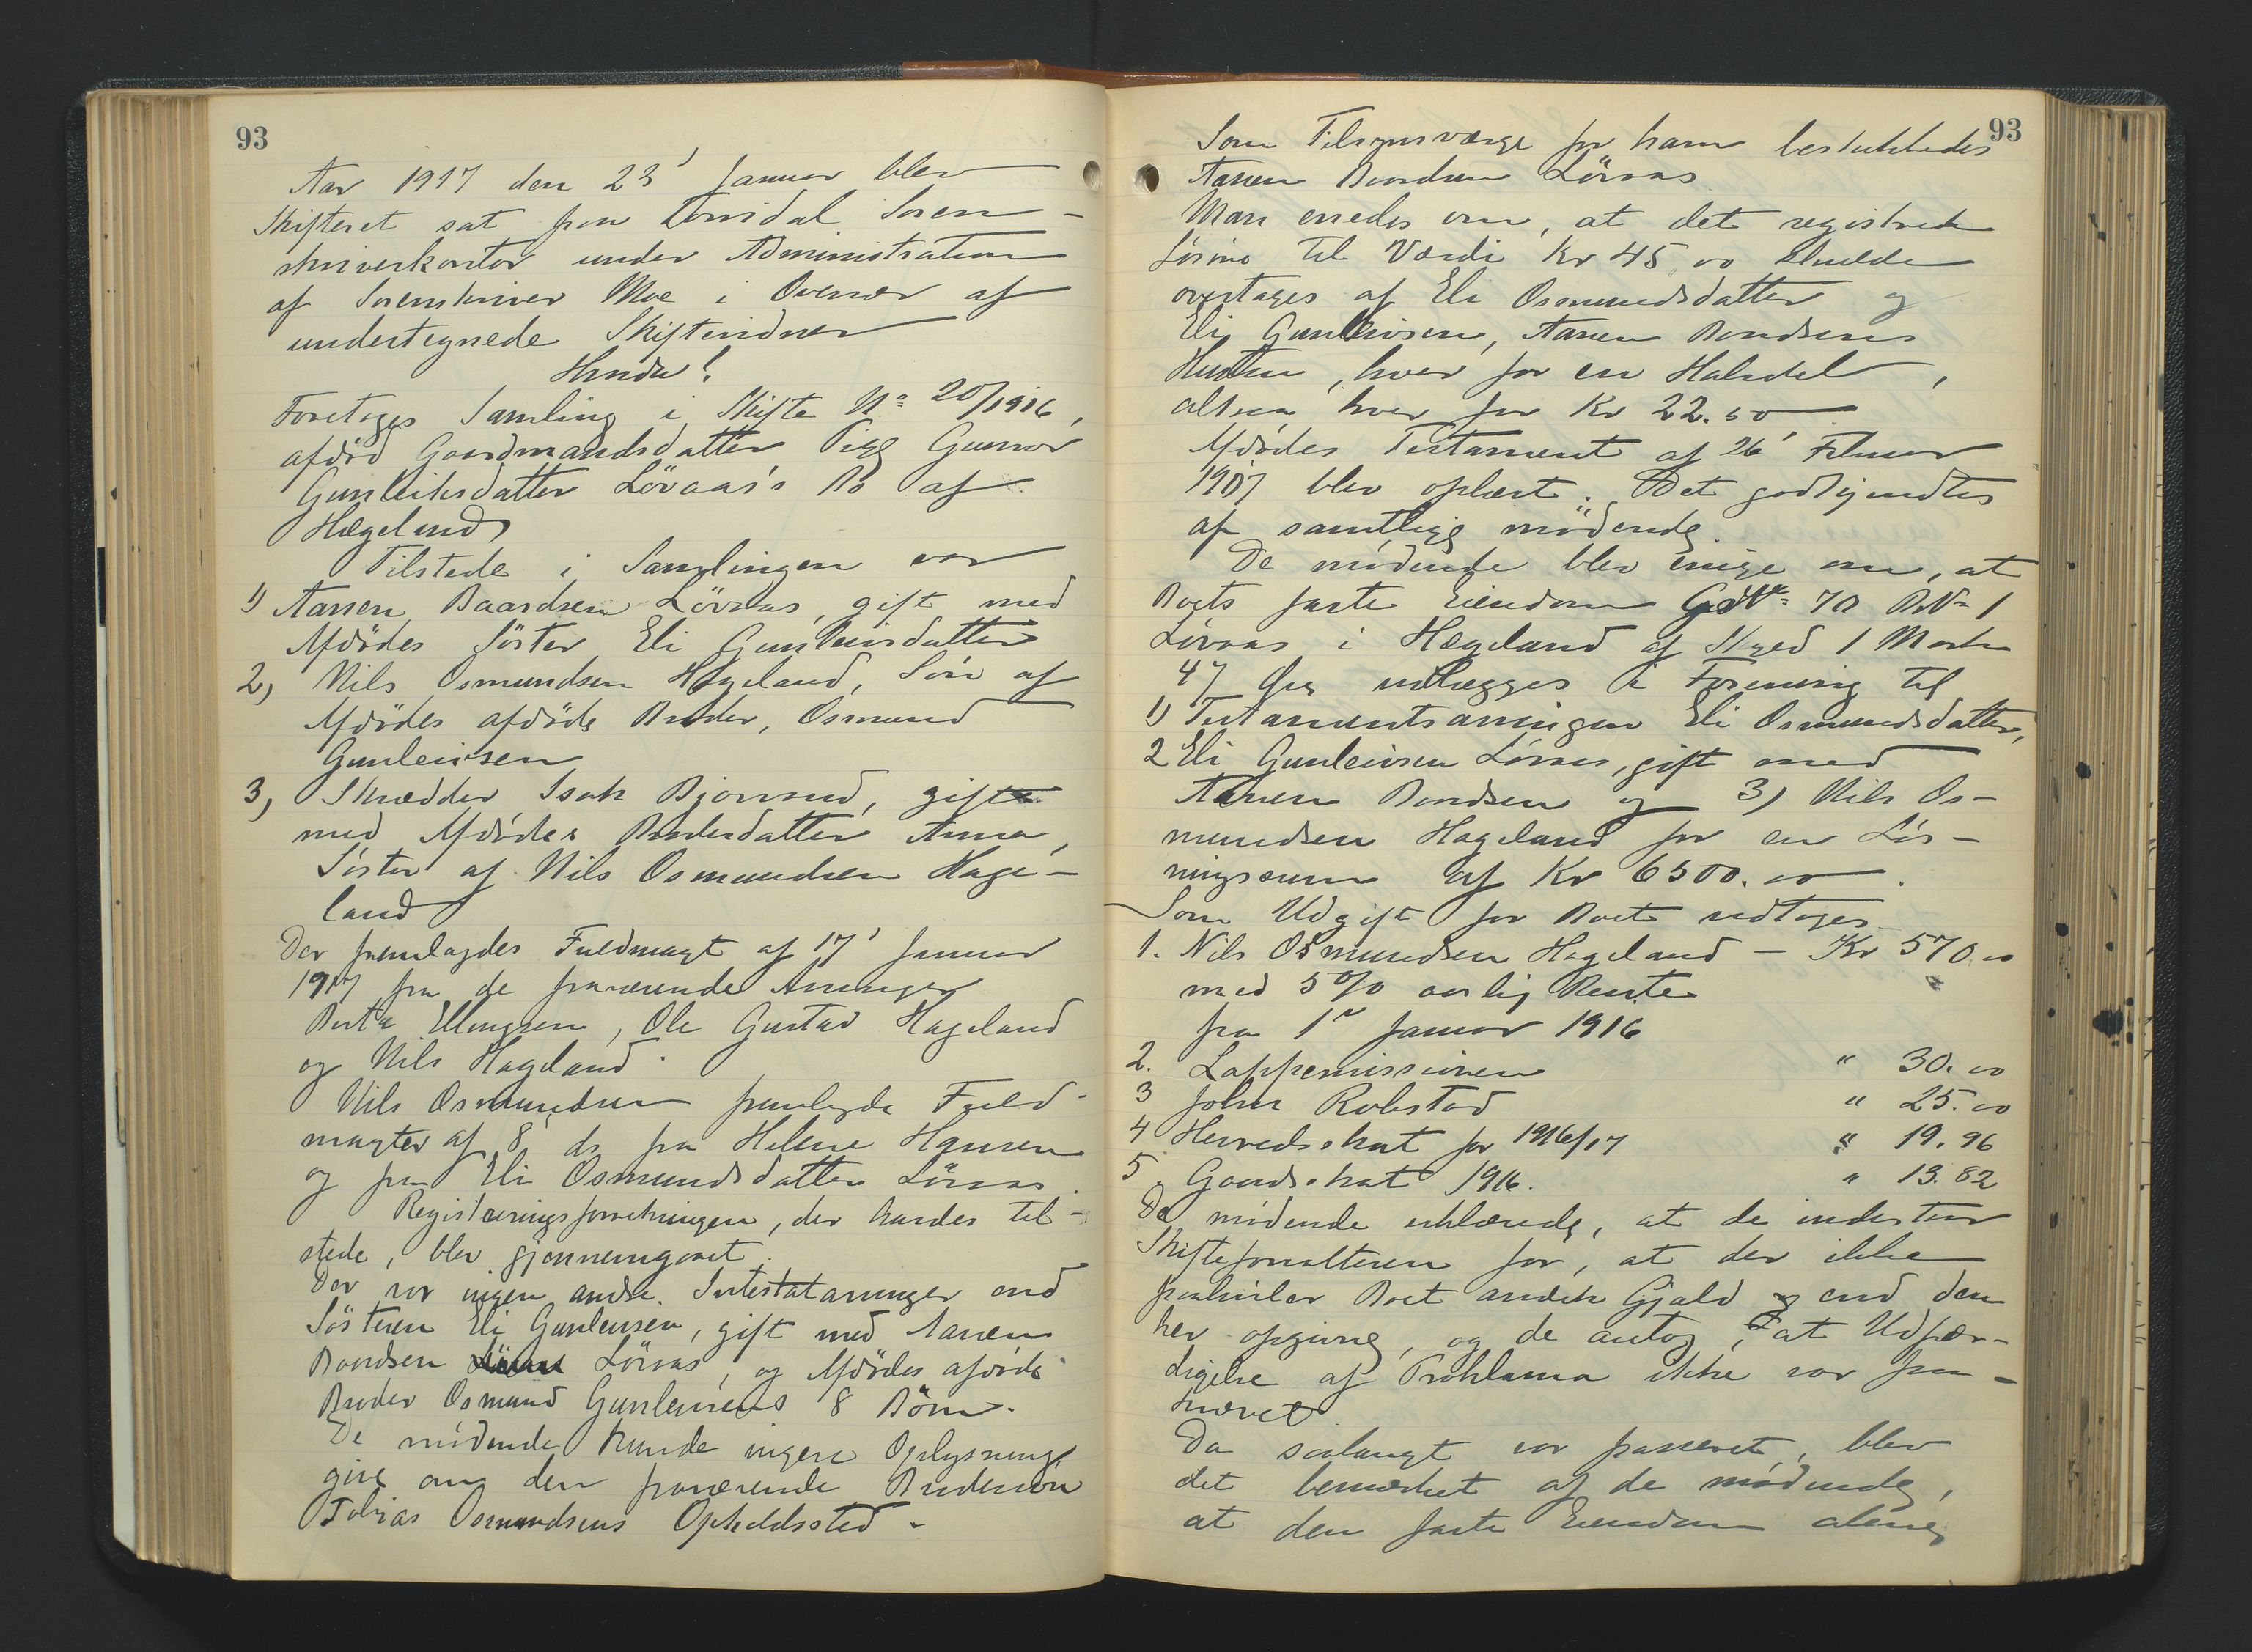 93
Aar 1917 den 23' Januar blev
Skifteret sat paa Torridal Soren-
skriverkontor under Administration
af Sorenskriver Moe i Overvær af
undertegnede Skiftevidner
Hvorda!
Foretoges Samling i Skifte No 20/1916,
afdød Gaardmandsdatter Pige Gunvor
Gunleiksdatter Lövaas's Bo af
Hægeland
Tilstede i Samlingen var
1) Aanen Baardsen Lövaas, gift med
Afdödes Söster Eli Gunleivsdatter
2) Nils Osmundsen Hageland, Sön af
Afdödes afdöde Broder, Osmund
Gunleivsen
3) Skrædder Isak Bjorvand, gift
med Afdödes Broderdatter Anna,
Söster af Nils Osmundsen Hage-
land
Der fremlagdes Fuldmagt af 17' Januar
1917 fra de fraværende Arvinger
Berta Ellingsen, Ole Gustav Hageland
og Nils Hageland.
Nils Osmundsen fremlagde Fuld-
magter af 8' ds fra Helene Hansen
og fra Eli Osmundsdatter Lövaas.
Registreringsforretningen, der havdes til-
stede, blev gjennemgaaet.
Der var ingen andre Intestatarvinger end
Söstren Eli Gunleivsen, gift med Aanen
Baardsen Lövaas, og Afdödes afdöde
Broder Osmund Gunleivsens 8 Börn.
De mödende kunde ingen Oplysninge
give om den fraværende Brodersön
Tobias Osmundsens Opholdssted.
93
Som Tilsynsværge for ham beskikkedes
Aanen Baardsen Lövaas
Man enedes om, at det registrerte
Lösöre til Værdi Kr 45,00 skulde
overtages af Eli Osmundsdatter og
Eli Gunleivsen, Aanen Baardsens
Hustru, hver for en Halvdel,
altsaa hver for Kr 22.50
Afdödes Testament af 26' Februar
1907 blev oplæst. Det godkjendtes
af samtlige mödende.
De mödende blev enige om, at
Boets faste Eiendom GdNo 70 BNo 1
Lövaas i Hægeland af Skyld 1 Mark
47 Öre udlægges i Forening til
1) Testamentsarvingen Eli Osmundsdatter,
2 Eli Gunleivsen Lövaas, gift med
Aanen Baardsen og 3) Nils Os-
mundsen Hageland for en Lös-
ningssum af Kr 6500.00.
Som Udgift for Boet vedtoges
1. Nils Osmundsen Hageland - Kr 570.00
med 5% aarlig Rente
fra 1' Januar 1916
2. Lappemissionen " 30.00
3 John Robstad " 25.00
4 Herredsskat for 1916/17 " 19.96
5. Gaardsskat 1916. " 13.82
De mödende erklærede, at de indestaar
Skifteforvalteren for, at der ikke
paahviler Boet anden Gjæld end den
her opgivne, og de antog, at Udfær-
digelse af Proklama ikke var paa-
krævet.
Da saalangt var passeret, blev
det bemærket af de mödende,
at den faste Eiendom alene